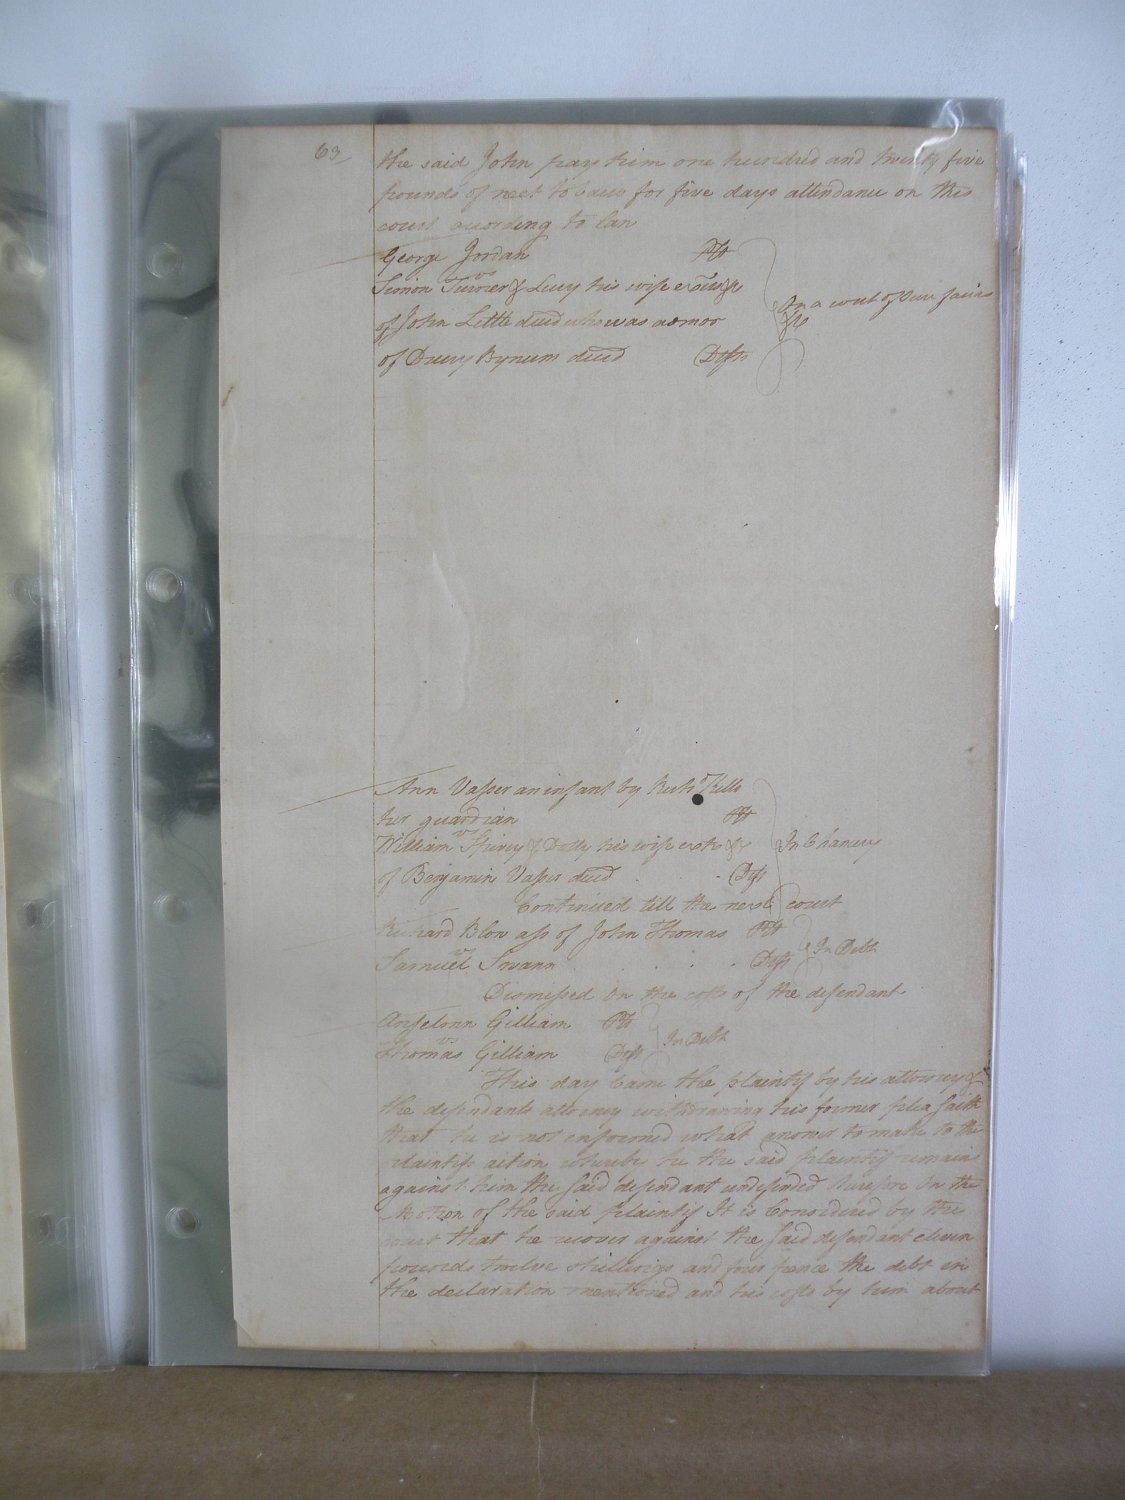 63
the said John pay him one hundred and twenty five
pounds of neet tobacco for five days attendance on this
court according to law
George Jordan Plt
vs
Simon Turner & Lucy his wife &c
of John Little decd who was admor
of Drury Bynum decd Defts
On a writ of Scire facias
Ann Vasser an infant by
her guardian Plt
vs
William Spivey & Dolly his wife &c
of Benjamin Vasser decd Defts
In Chancery
Continued till the next court
Richard Blow asse of John Thomas Plt
vs
Samuel Swann Deft
In Debt
Dismissed on the costs of the defendant
Anselmn Gilliam Plt
vs
Thomas Gilliam Deft
In Debt
This day came the plaintif by his attorney &
the defendants attorney withdrawing his former plea saith
that he is not informed what answer to make to the
plaintifs action whereby he the said plaintif remains
against him the said defendant undefended therefore On the
Motion of the said plaintif It is Considered by the
court that he recover against the said defendant eleven
pounds twelve shillings and four pence the debt in
the declaration mentioned and his costs by him about